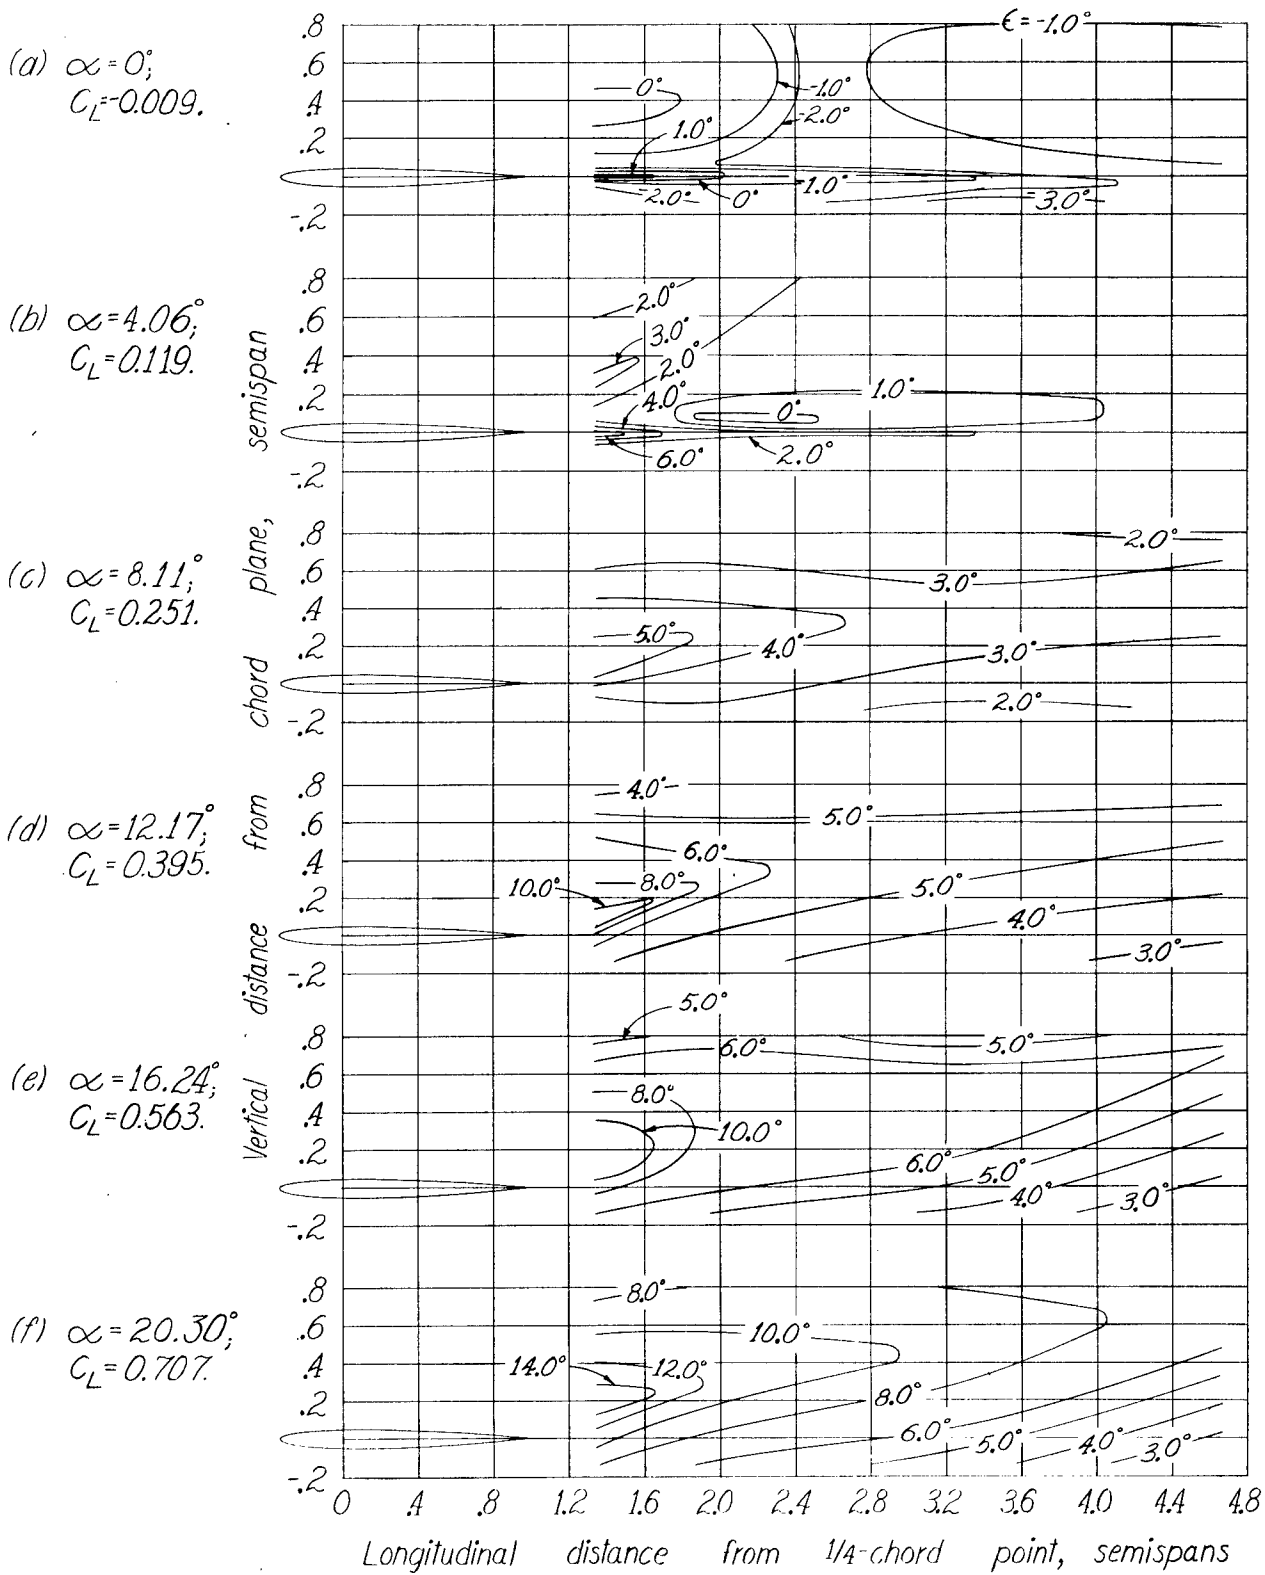 (a) α=0°;
C_L=-0.009.
.8
.6
.4
.2
-.2
ϵ=-1.0°
0°
-1.0°
-2.0°
1.0°
-2.0°
0°
-1.0°
-3.0°
(b) α=4.06°;
C_L=0.119.
.8
.6
.4
.2
-.2
2.0°
3.0°
2.0°
4.0°
1.0°
0°
6.0°
2.0°
(c) α=8.11°;
C_L=0.251.
.8
.6
.4
.2
-.2
2.0°
3.0°
5.0°
4.0°
3.0°
2.0°
(d) α=12.17°;
C_L=0.395.
.8
.6
.4
.2
-.2
4.0°
5.0°
6.0°
10.0°
8.0°
5.0°
4.0°
3.0°
(e) α=16.24°;
C_L=0.563.
.8
.6
.4
.2
-.2
5.0°
6.0°
5.0°
8.0°
10.0°
6.0°
5.0°
4.0°
3.0°
(f) α=20.30°;
C_L=0.707.
.8
.6
.4
.2
-.2
8.0°
10.0°
14.0°
12.0°
8.0°
6.0°
5.0°
4.0°
3.0°
Vertical distance from chord plane, semispan
0 .4 .8 1.2 1.6 2.0 2.4 2.8 3.2 3.6 4.0 4.4 4.8
Longitudinal distance from 1/4-chord point, semispans